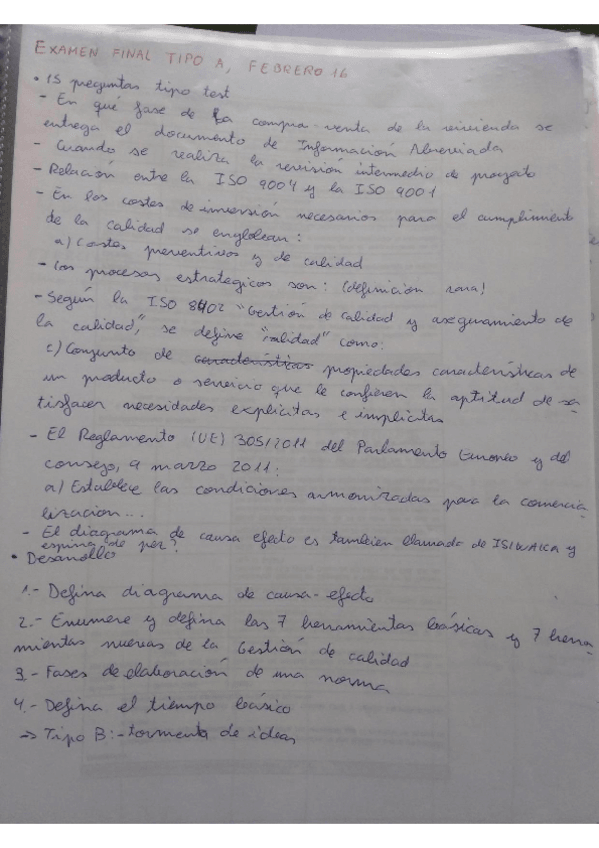 EXAMEN FINAL TIPO A, FEBRERO 16
• 15 preguntas tipo test
- En qué fase de la compra-venta de la vivienda se
entrega el documento de Información Abreviada
- Cuando se realiza la revisión intermedio de proyecto
- Relación entre la ISO 9004 y la ISO 9001
- En los costes de inversión necesarios para el cumplimiento
de la calidad se engloban:
a) Costes preventivos y de calidad
- Los procesos estrategicos son: (definición rara)
- Según la ISO 8402 "Gestión de calidad y aseguramiento de
la calidad", se define "calidad" como:
c) Conjunto de características propiedades características de
un producto o servicio que le confieren la aptitud de sa
tisfacer necesidades explicitas e implicitas
- El Reglamento (UE) 305/2011 del Parlamento Europeo y del
consejo, 9 marzo 2011:
a) Establece las condiciones armonizadas para la comercia
lización...
- El diagrama de causa efecto es tambien llamado de ISIWAICA y
espina de pez?
• Desarrollo
1.- Defina diagrama de causa-efecto
2.- Enumere y defina las 7 herramientas básicas y 7 herra-
mientas nuevas de la Gestión de calidad
3.- Fases de elaboración de una norma
4.- Defina el tiempo básico
=> Tipo B:-tormenta de ideas